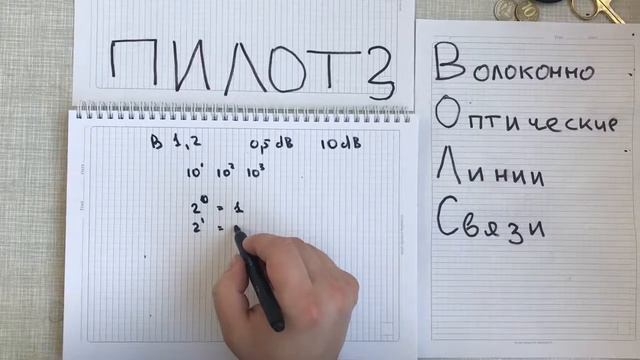 ПИЛОТ 3
В 1,2 0,5 dB 10 dB
10¹ 10² 10³
2⁰ = 1
2¹ =
Волоконно
Оптические
Линии
Связи